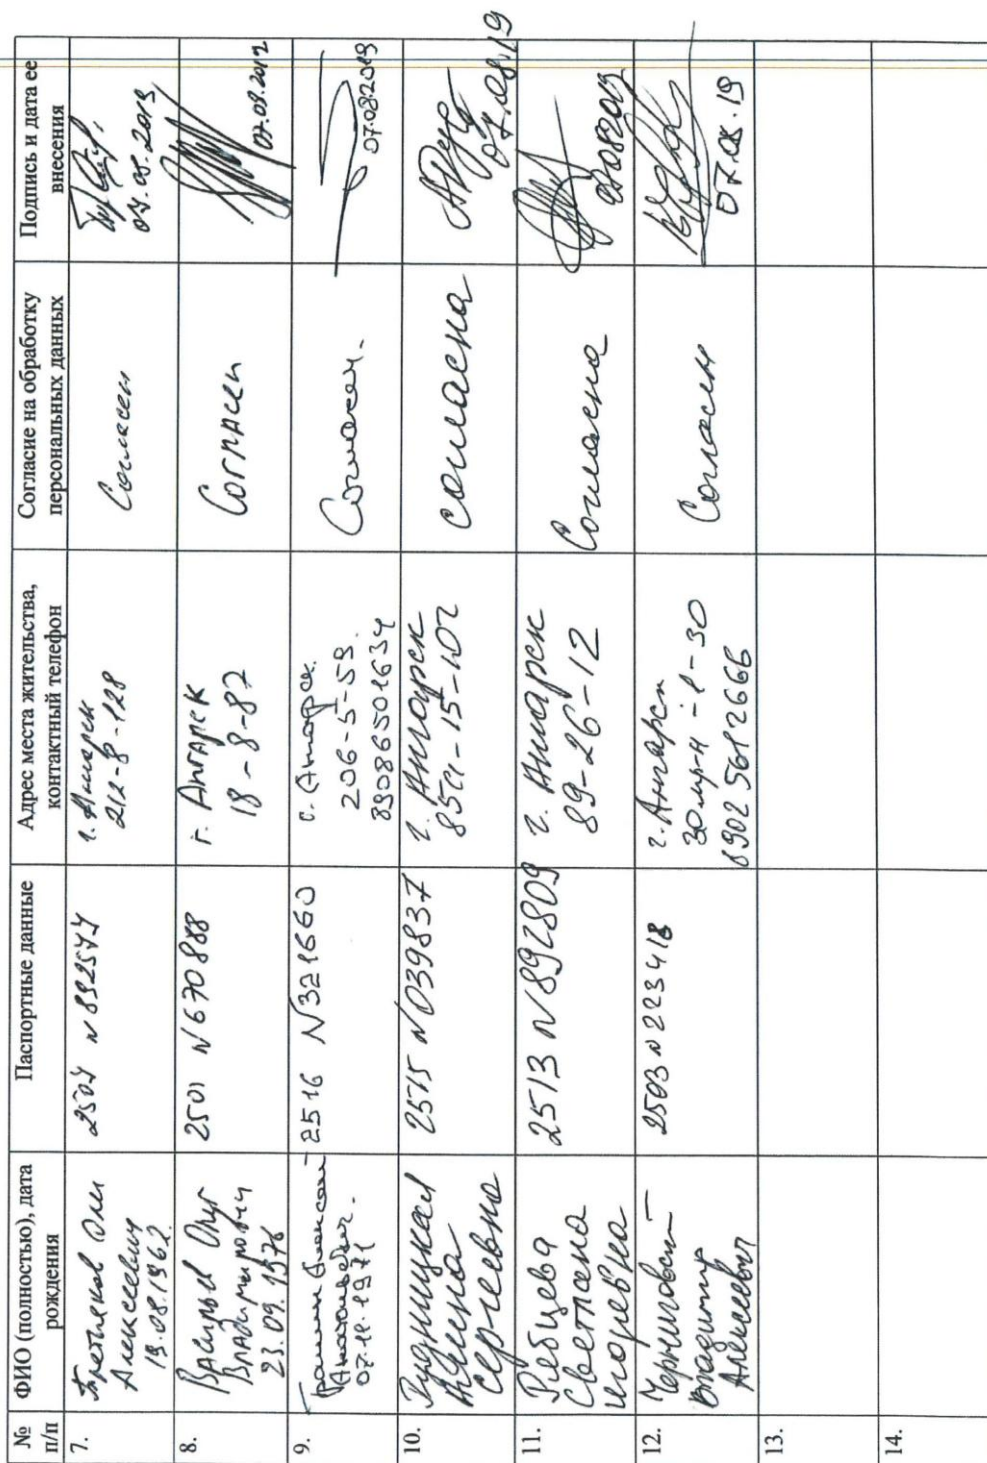 № п/п
ФИО (полностью), дата рождения
Паспортные данные
Адрес места жительства, контактный телефон
Согласие на обработку персональных данных
Подпись и дата ее внесения
7.
Третьяков Олег
Алексеевич
19.08.1962.
г. Ангарск
212-8-128
Согласен
07.08.2019
8.
Владимирович
23.09.1976
2501 N 670888
г. Ангарск
18-8-87
Согласен
9.
Анатольевич
2516 N 321660
г. Ангарск
206-5-59.
89086501634
Согласен.
07.08.2019
10.
Рудницкая
Сергеевна
2515 N 039837
г. Ангарск
согласна
07.08.19
11.
Рябцева
Светлана
Игоревна
2513 N 892809
г. Ангарск
89-26-12
Согласна
12.
Владимир
Алексеевич
2503 N 223418
г. Ангарск
Согласен
07.08.19
13.
14.